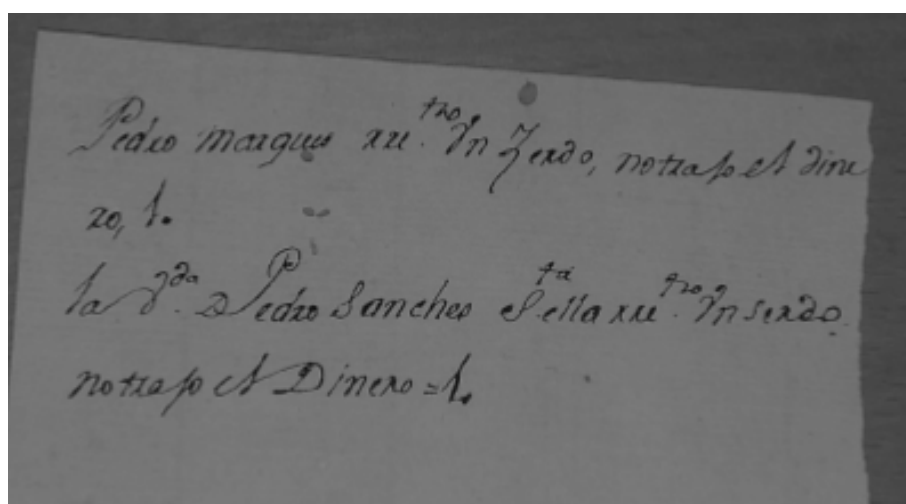 Pedro marques rre.tro Vn Zerdo, notrajo el dine
ro, 1.
la V.da D Pedro Sanches S.ta ella rre.tro Vn serdo
notrajo el Dinero = 1.